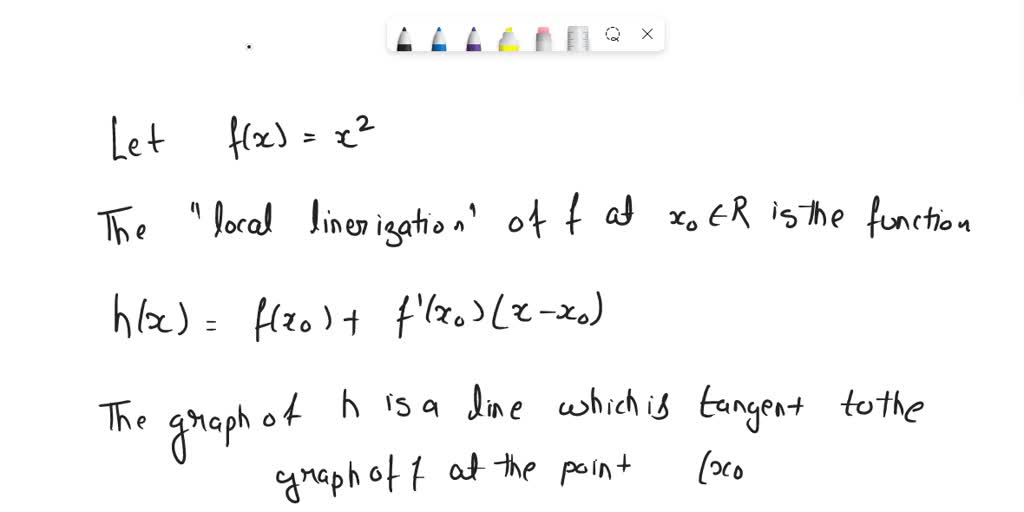 Let f(x) = x²
The "local linerization" of f at x₀ ∈ R is the function
h(x) = f(x₀) + f'(x₀)(x-x₀)
The graph of h is a line which is tangent to the
graph of f at the point (x₀